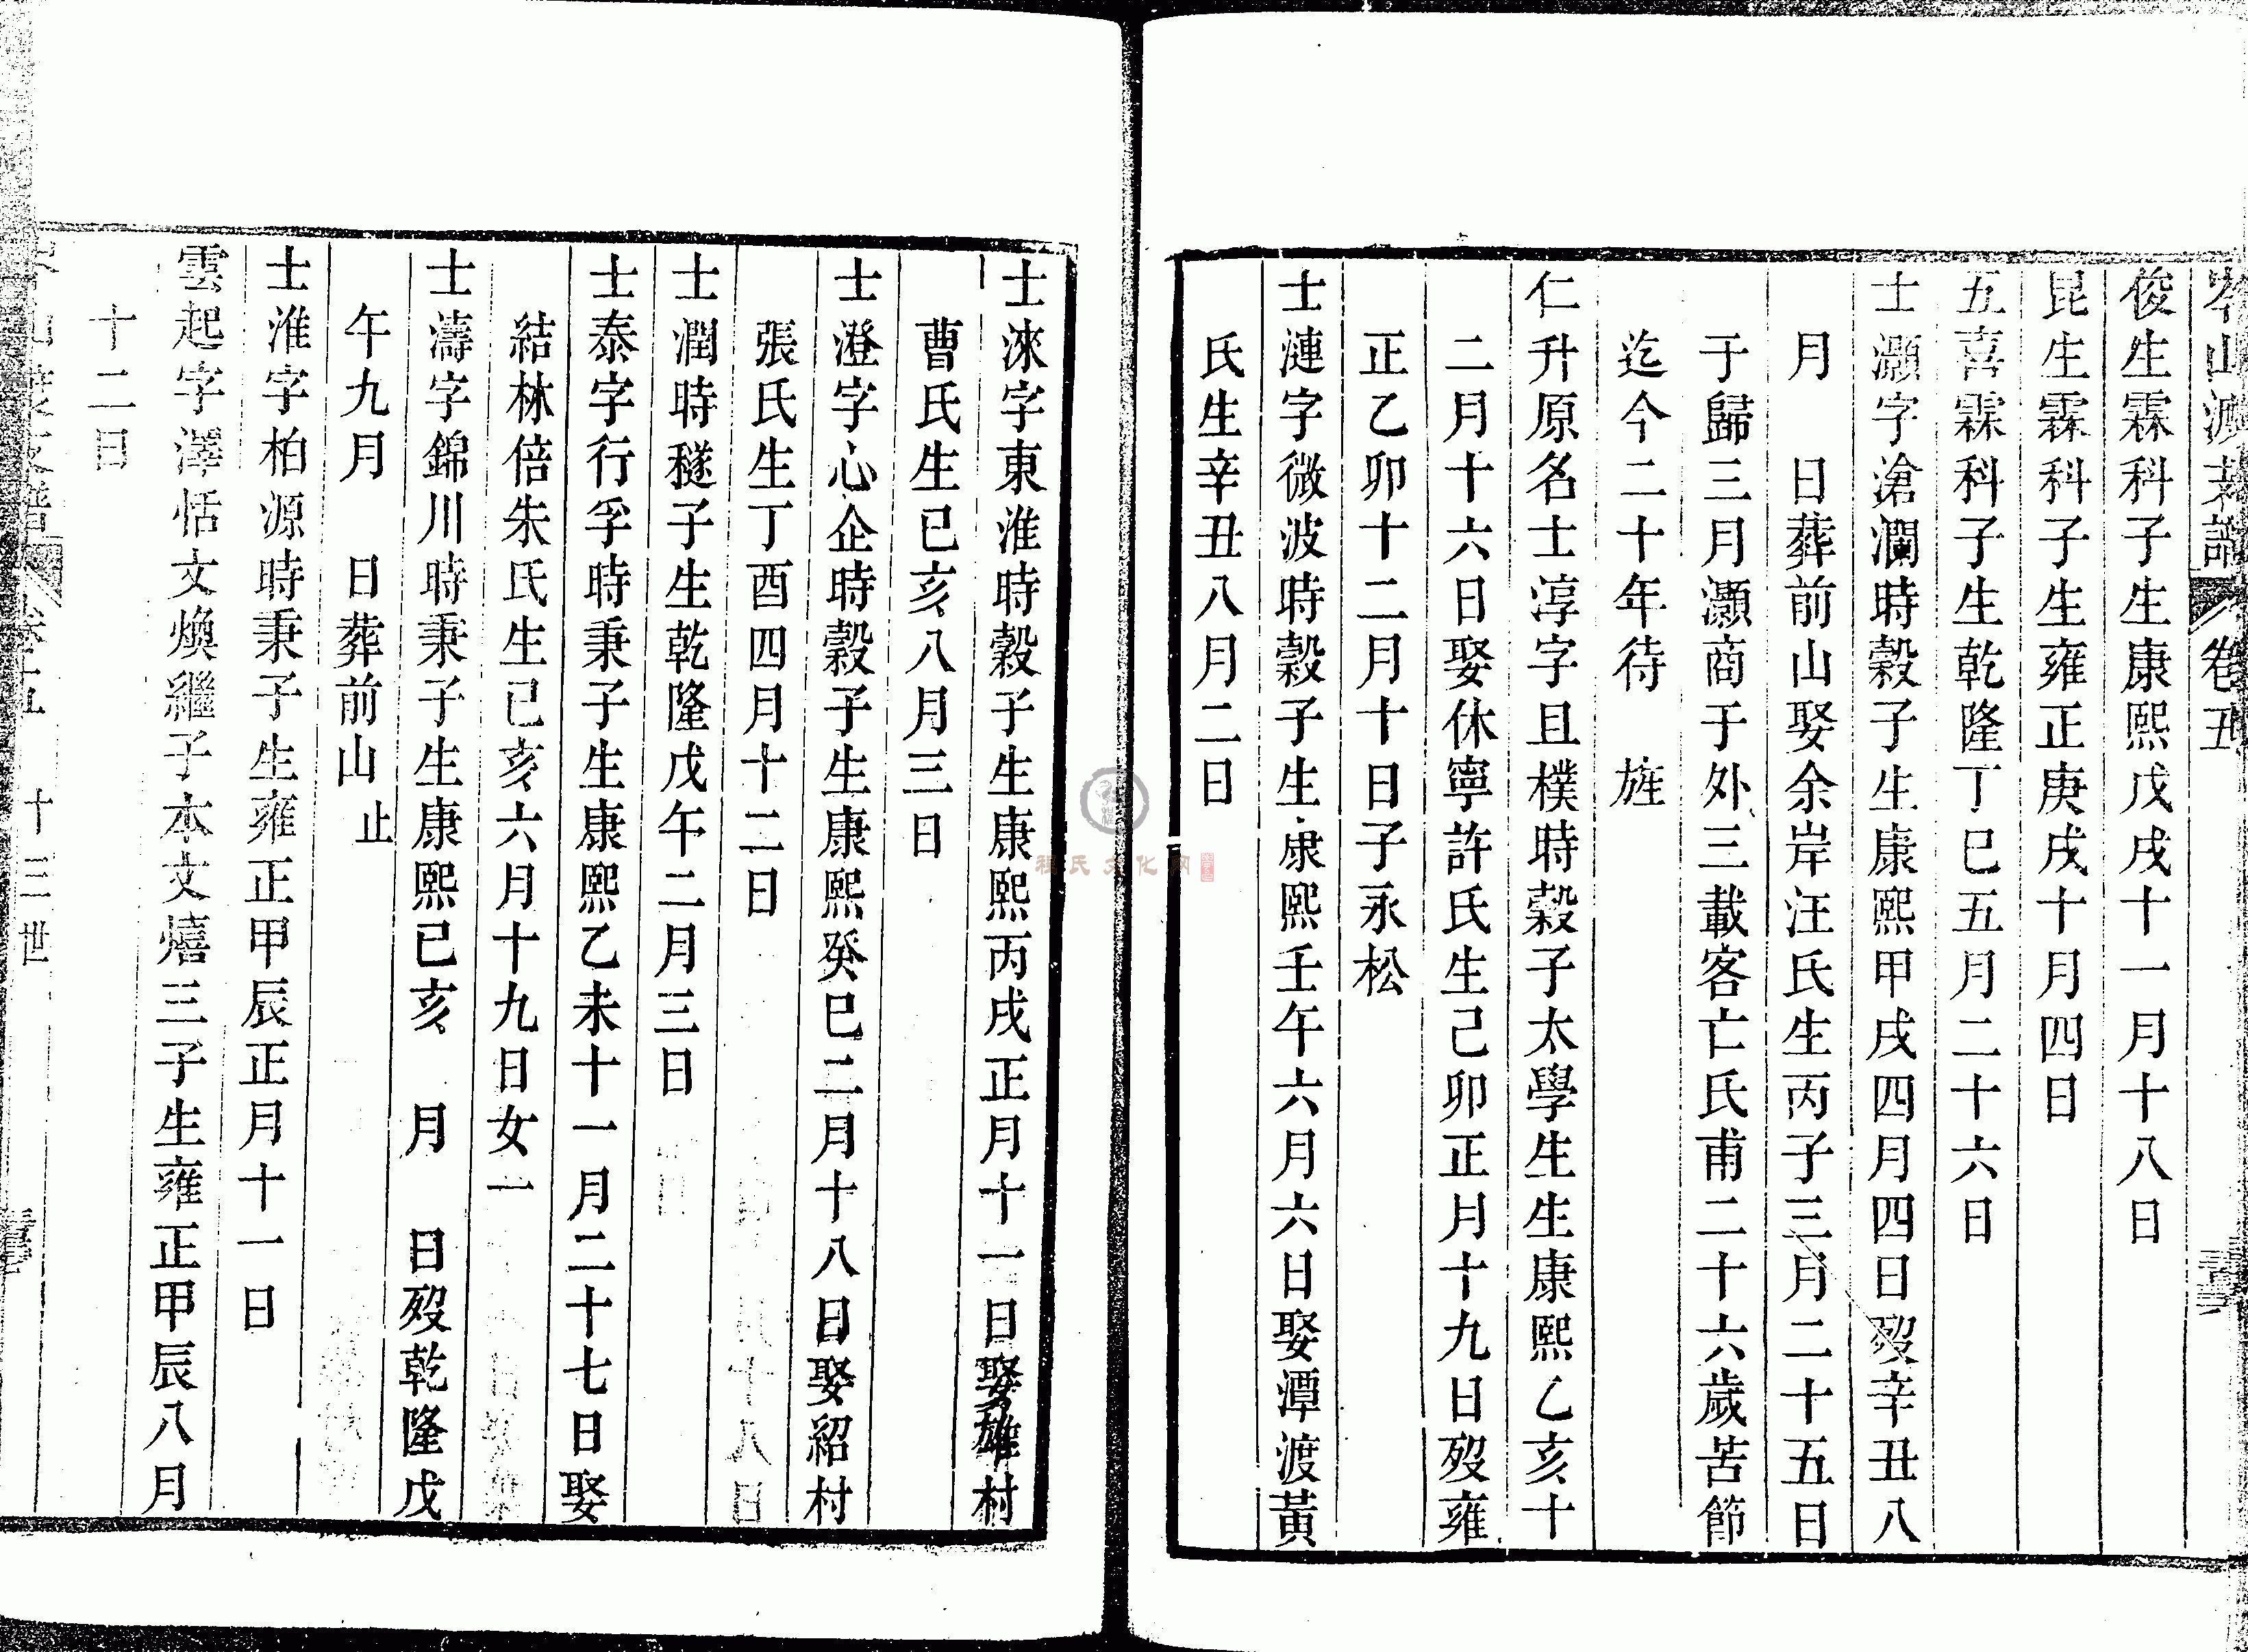 岑山渡支譜 卷五
俊生霖科子生康熙戊戌十一月十八日
昆生霖科子生雍正庚戌十月四日
五喜霖科子生乾隆丁巳五月二十六日
士灝字滄瀾時穀子生康熙甲戌四月四日歿辛丑八
月 日葬前山娶余岸汪氏生丙子三月二十五日
于歸三月灝商于外三載客亡氏甫二十六歲苦節
迄今二十年待 旌
仁升原名士淳字且樸時穀子太學生生康熙乙亥十
二月十六日娶休寧許氏生己卯正月十九日歿雍
正乙卯十二月十日子永松
士漣字微波時穀子生康熙壬午六月六日娶潭渡黃
氏生辛丑八月二日
士淶字東淮時穀子生康熙丙戌正月十一日娶雄村
曹氏生已亥八月三日
士澄字心企時穀子生康熙癸巳二月十八日娶紹村
張氏生丁酉四月十二日
士潤時穟子生乾隆戊午二月三日
士泰字行孚時秉子生康熙乙未十一月二十七日娶
結林倍朱氏生已亥六月十九日女一
士濤字錦川時秉子生康熙已亥 月 日歿乾隆戊
午九月 日葬前山 止
士淮字柏源時秉子生雍正甲辰正月十一日
雲起字澤恬文煥繼子本文熺三子生雍正甲辰八月
十二日
卷五 十三世
程氏文化网